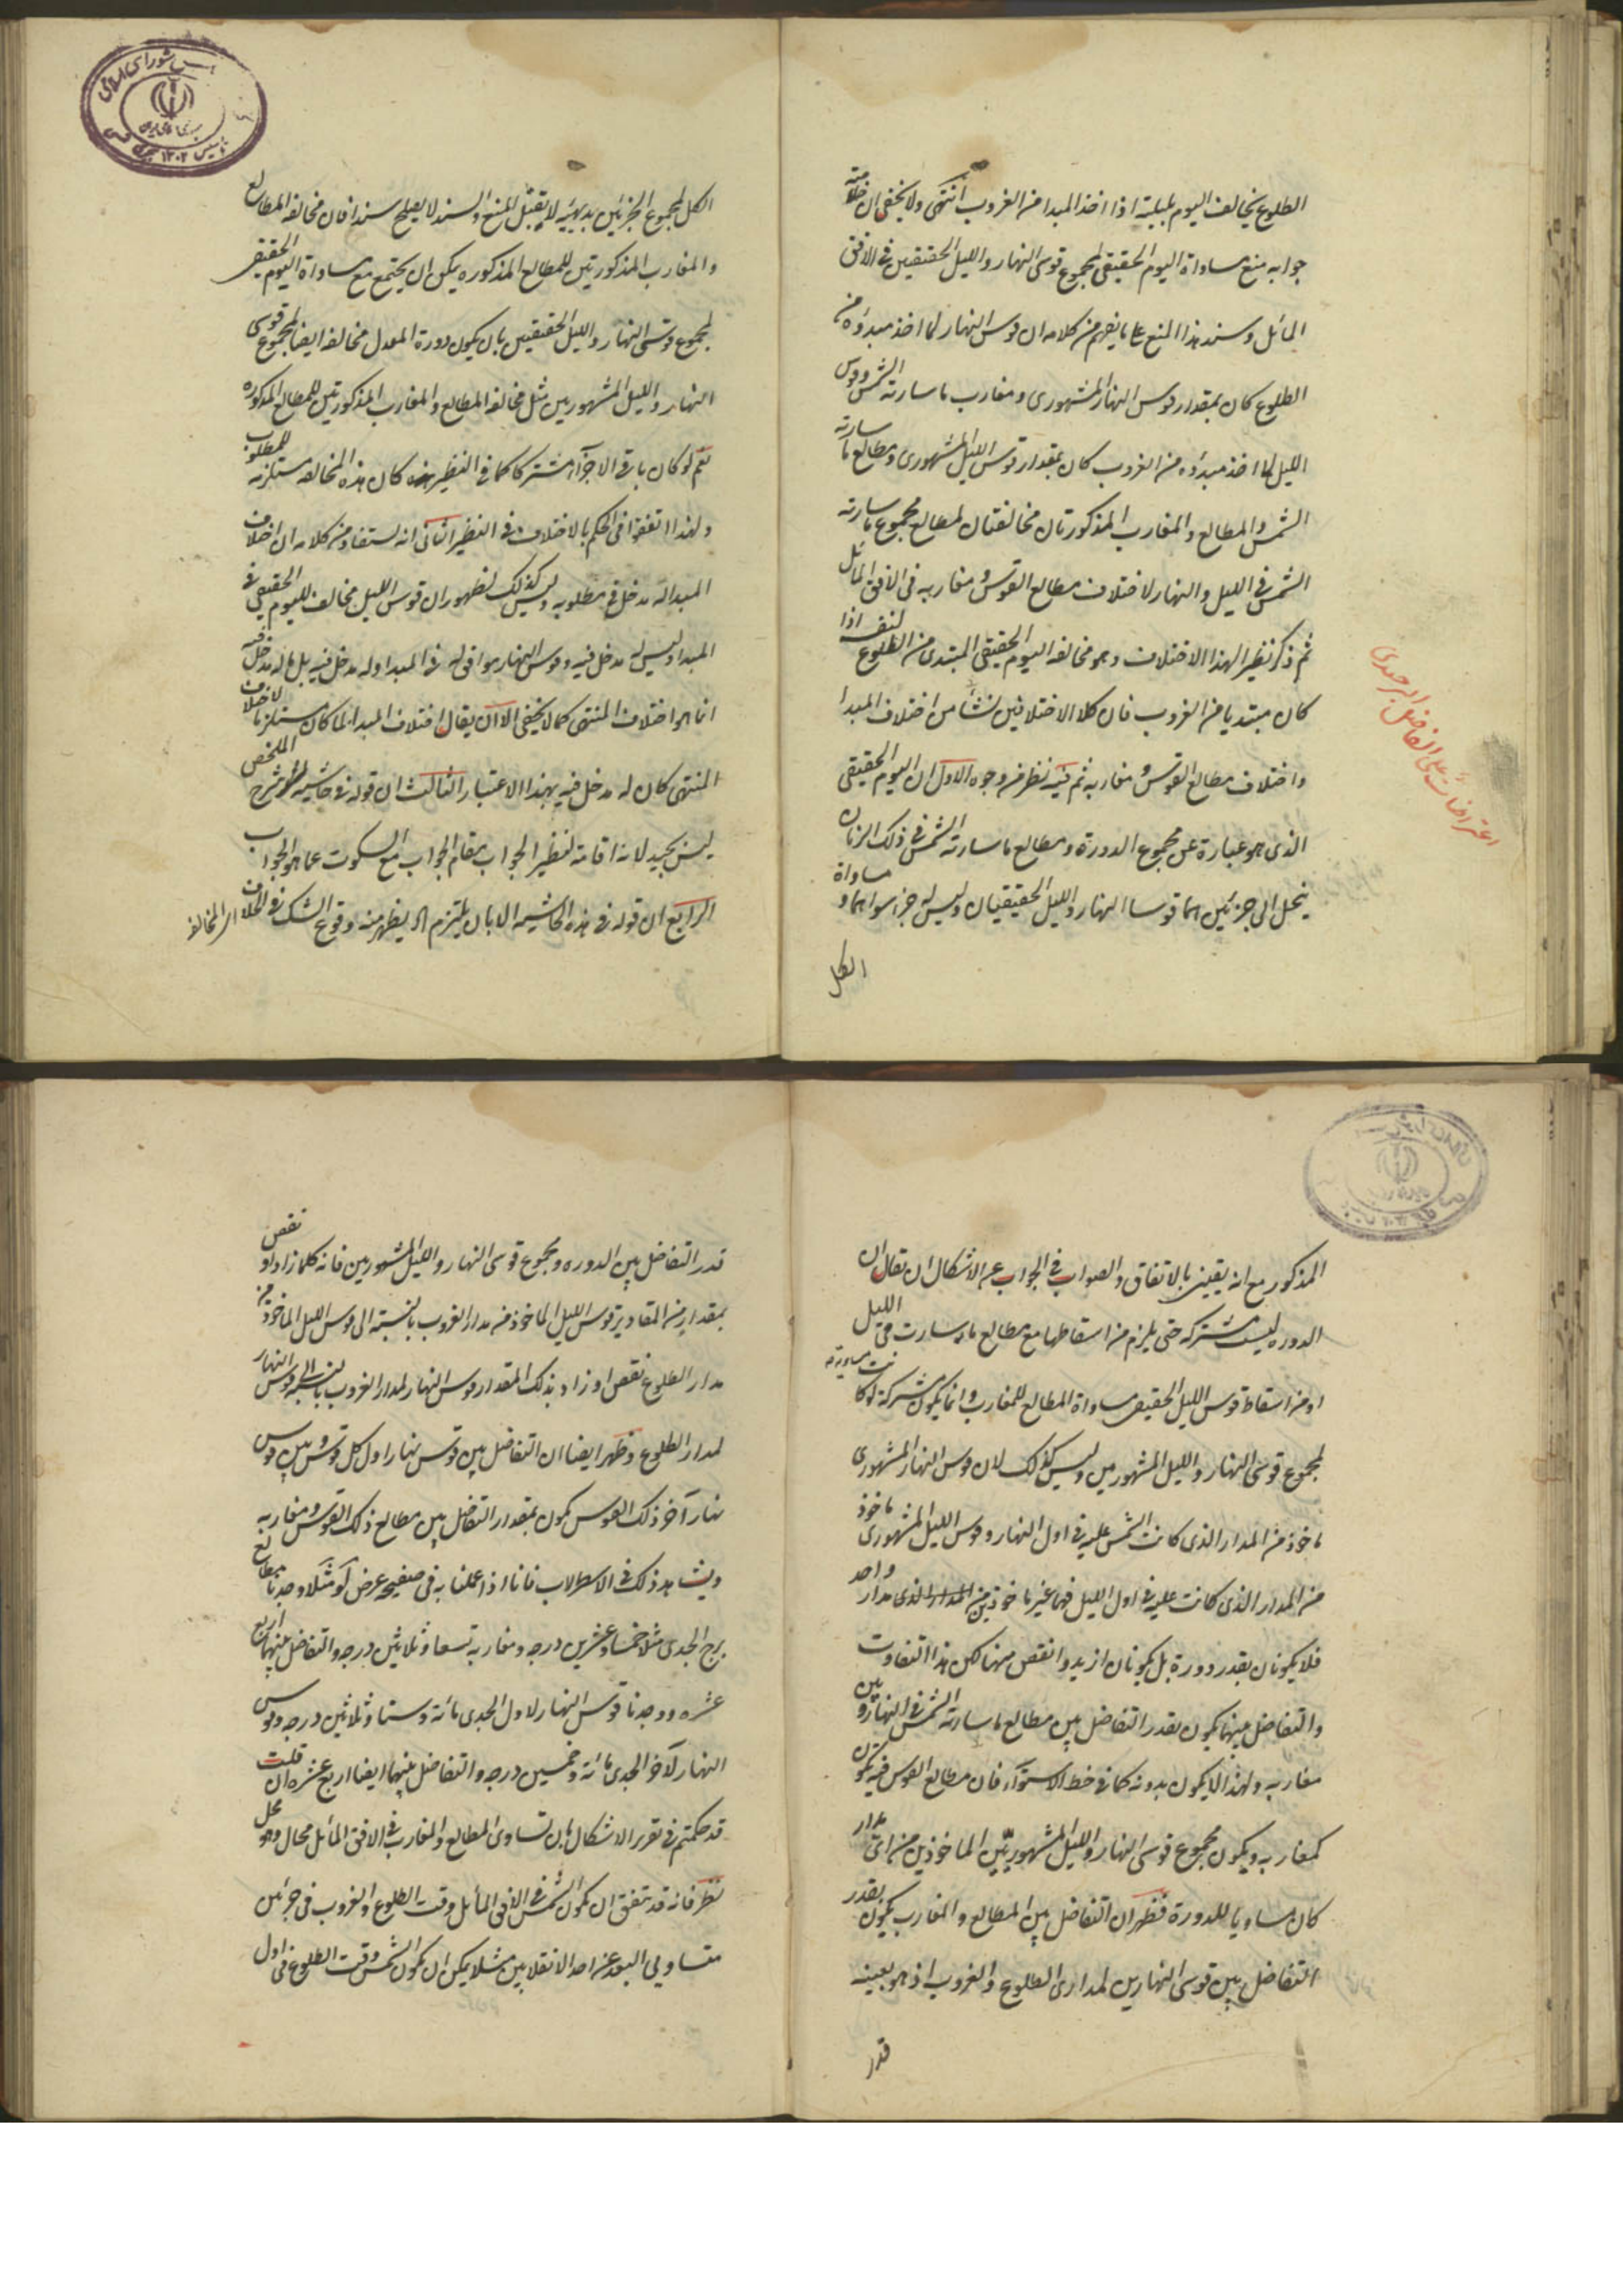 الطلوع يخالف اليوم بليلته اذا اخذ المبدا من الغروب انتهى ولا يخفى ان خلاصة
جوابه منع مساواة اليوم الحقيقى لمجموع قوسى النهار والليل الحقيقيين فى الافق
المائل وسند هذا المنع على ما يفهم من كلامه ان قوس النهار لما اخذ مبدؤه من
الطلوع كان بمقدار قوس النهار المشهورى ومغارب ما سارته الشمس وقوس
الليل لما اخذ مبدؤه من الغروب كان بمقدار قوس الليل المشهورى ومطالع ما سارته
الشمس والمطالع والمغارب المذكورتان مخالفتان لمطالع مجموع ما سارته
الشمس فى الليل والنهار لاختلاف مطالع القوس ومغاربه فى الافق المائل
ثم ذكر نظيرا لهذا الاختلاف وهو مخالفة اليوم الحقيقى المبتدى من الطلوع لنفسه اذا
كان مبتديا من الغروب فان كلا الاختلافين نشأ من اختلاف المبدا
واختلاف مطالع القوس ومغاربه ثم فيه نظر من وجوه الاول ان اليوم الحقيقى
الذى هو عبارة عن مجموع الدورة ومطالع ما سارته الشمس فى ذلك الزمان
ينحل الى جزئين هما قوسا النهار والليل الحقيقيان وليس له جزء سواهما ومساواة
الكل
اعتراضات على الفاضل البرجندى
الكل لمجموع الجزئين بديهية لا يقبل المنع والسند لا يصلح سندا فان مخالفة المطالع
والمغارب المذكورتين للمطالع المذكوره يمكن ان يجتمع مع مساواة اليوم الحقيقى
لمجموع قوسى النهار والليل الحقيقيين بان يكون دورة المعدل مخالفة ايضا لمجموع قوسى
النهار والليل المشهورين مثل مخالفة المطالع والمغارب المذكورتين للمطالع المذكوره
نعم لو كان باقى الاجزاء مشتركا كما فى النظير كان هذه المخالفة مستلزمة للمطلوب
ولهذا اتفقوا فى الحكم بالاختلاف فى النظير الثانى انه يستفاد من كلامه ان اختلاف
المبدا له مدخل فى مطلوبه وليس كذلك لظهور ان قوس الليل مخالف لليوم الحقيقى فى
المبدا وليس له مدخل فيه وقوس النهار موافق له فى المبدا وله مدخل فيه بل ما له مدخل فيه
انما هو اختلاف المنتهى كما لا يخفى الا ان يقال اختلاف المبدا لما كان مستلزما لاختلاف
المنتهى كان له مدخل فيه بهذا الاعتبار الثالث ان قوله فى حاشيته شرح الملخص
ليس بجيد لانه اقامة لنظير الجواب مقام الجواب مع السكوت عما هو الجواب
الرابع ان قوله فى هذه الحاشيه الا بان يلتزم اه يظهر منه وقوع الشك فى الخلاف اى المخالفة
المذكور مع انه يقينى بالاتفاق والصواب فى الجواب عن الاشكال ان يقال ان
الدوره ليست مشتركه حتى يلزم من اسقاطها مع مطالع ما سارت فى الليل
او من اسقاط قوس الليل الحقيقى مساواة المطالع للمغارب وانما يكون مشتركة لو كانت مساوية
لمجموع قوسى النهار والليل المشهورين وليس كذلك لان قوس النهار المشهورى
ماخوذ من المدار الذى كانت الشمس عليه فى اول النهار وقوس الليل المشهورى ماخوذ
من المدار الذى كانت عليه فى اول الليل فهما غير ماخوذين من مدار واحد
فلا يكونان بقدر دورة بل يكونان ازيد وانقص منها لكن هذا التفاوت
والتفاضل بينهما يكون بقدر التفاضل بين مطالع ما سارته الشمس فى النهار وبين
مغاربه ولهذا لا يكون بدونه كما فى خط الاستواء فان مطالع القوس فيه يكون
كمغاربه ويكون مجموع قوسى النهار والليل المشهوريين الماخوذين من اى مدار
كان مساويا للدورة فظهر ان التفاضل بين المطالع والمغارب يكون بقدر
التفاضل بين قوسى النهارين لمدارى الطلوع والغروب اذ هو بعينه
قدر
قدر التفاضل بين الدوره ومجموع قوسى النهار والليل المشهورين فانه كلما زاد او نقص
بمقدار من المقادير قوس الليل الماخوذ من مدار الغروب بالنسبة الى قوس الليل الماخوذ من
مدار الطلوع نقص او زاد بذلك المقدار قوس النهار لمدار الغروب بالنسبة الى قوس النهار
لمدار الطلوع وظهر ايضا ان التفاضل بين قوس نهار اول كل قوس وبين قوس
نهار آخر ذلك القوس يكون بمقدار التفاضل بين مطالع ذلك القوس ومغاربه
ويشاهد ذلك فى الاسطرلاب فانا اذا عملنا به فى صفيحة عرض لو مثلا وجدنا مطالع
برج الجدى مثلا خمسا وعشرين درجه ومغاربه تسعا وثلاثين درجه والتفاضل بينهما اربع
عشره ووجدنا قوس النهار لاول الجدى مائة وستا وثلاثين درجه وقوس
النهار لآخر الجدى مائة وخمسين درجه والتفاضل بينهما ايضا اربع عشره ان قلت
قد حكمتم فى تقرير الاشكال بان تساوى المطالع والمغارب فى الافق المائل محال وهو محل
نظر فانه قد يتفق ان يكون الشمس فى الافق المائل وقت الطلوع والغروب فى جزئين
متساويى البعد عن احد الانقلابين مثلا يمكن ان يكون الشمس وقت الطلوع فى اول